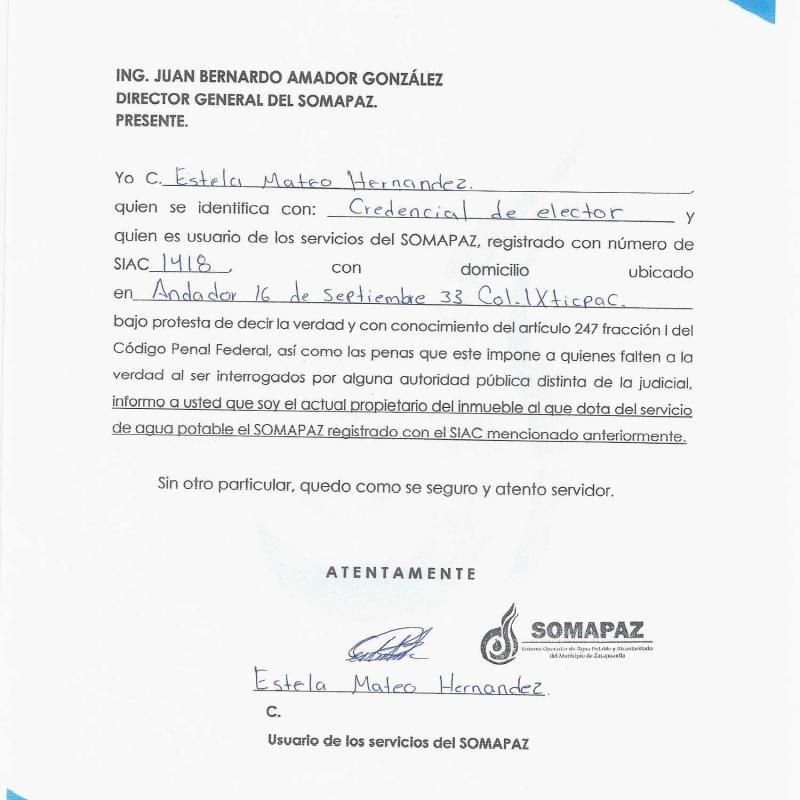 ING. JUAN BERNARDO AMADOR GONZÁLEZ
DIRECTOR GENERAL DEL SOMAPAZ.
PRESENTE.
Yo C. Estela Mateo Hernandez.,
quien se identifica con: Credencial de elector y
quien es usuario de los servicios del SOMAPAZ, registrado con número de
SIAC 1418, con domicilio ubicado
en Andador 16 de Septiembre 33 Col. IXticpac.
bajo protesta de decir la verdad y con conocimiento del artículo 247 fracción I del
Código Penal Federal, así como las penas que este impone a quienes falten a la
verdad al ser interrogados por alguna autoridad pública distinta de la judicial,
informo a usted que soy el actual propietario del inmueble al que dota del servicio
de agua potable el SOMAPAZ registrado con el SIAC mencionado anteriormente.
Sin otro particular, quedo como se seguro y atento servidor.
ATENTAMENTE
SOMAPAZ
Sistema Operador de Agua Potable y Alcantarillado
del Municipio de Zacapoaxtla
Estela Mateo Hernandez.
C.
Usuario de los servicios del SOMAPAZ